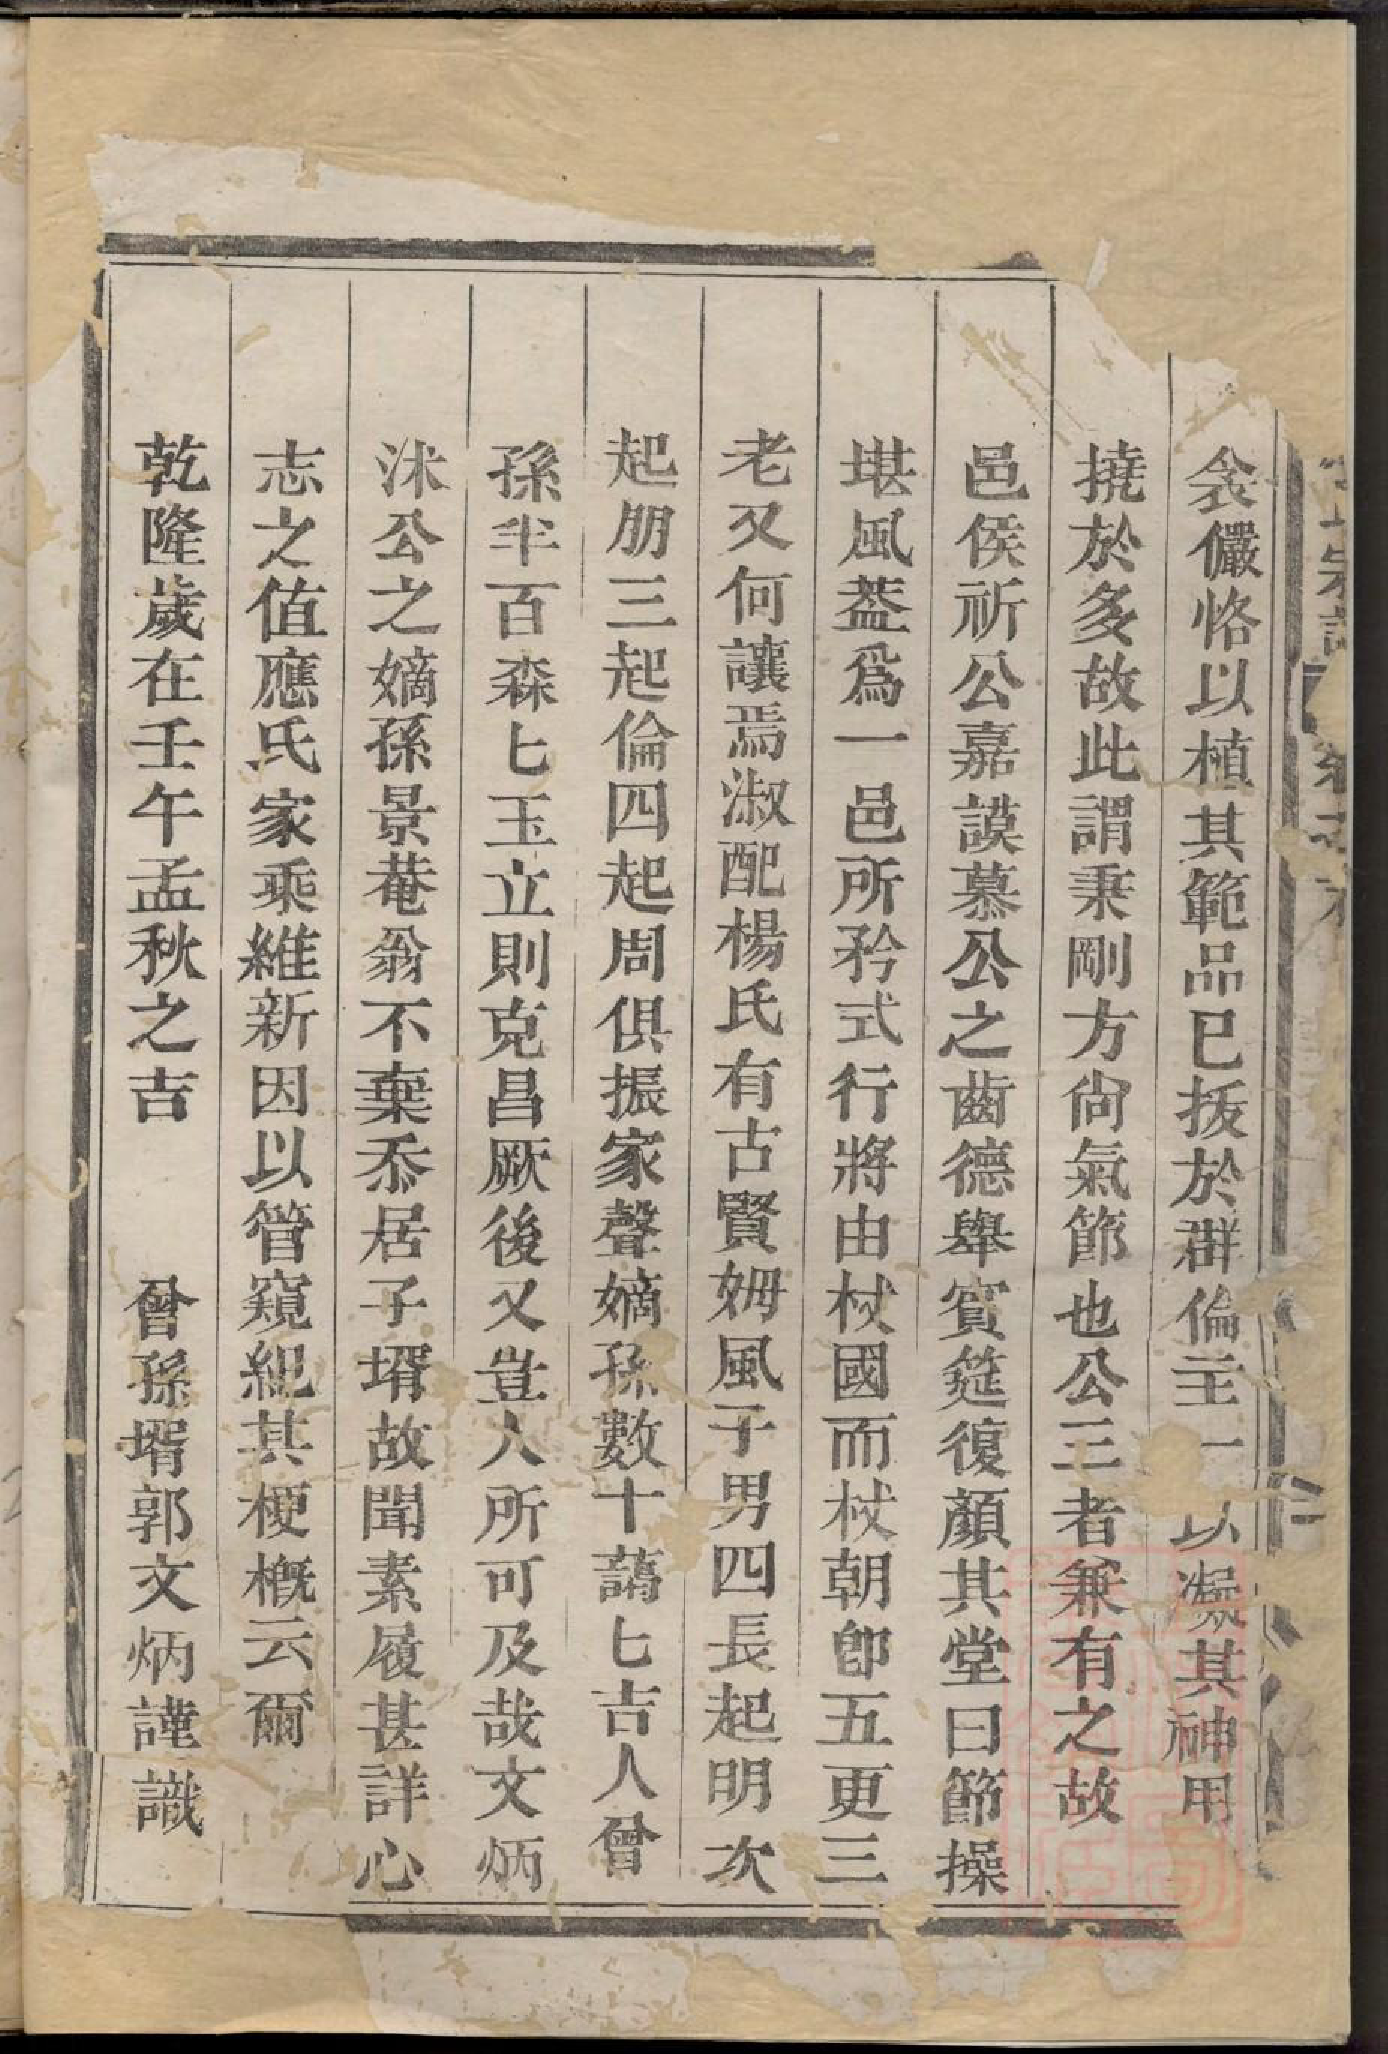 衾儼恪以植其範品已拔於群倫主一以凝其神用
撓於多故此謂秉剛方尙氣節也公三者兼有之故
邑侯祈公嘉謨慕公之齒德舉賓筵復顏其堂曰節操
堪風葢爲一邑所矜式行將由杖國而杖朝卽五更三
老又何讓焉淑配楊氏有古賢姆風子男四長起明次
起朋三起倫四起周俱振家聲嫡孫數十藹匕吉人曾
孫半百森匕玉立則克昌厥後又豈人所可及哉文炳
沐公之嫡孫景菴翁不棄忝居子壻故聞素履甚詳心
志之值應氏家乘維新因以管窺紀其梗槪云爾
乾隆歲在壬午孟秋之吉 曾孫壻郭文炳謹識